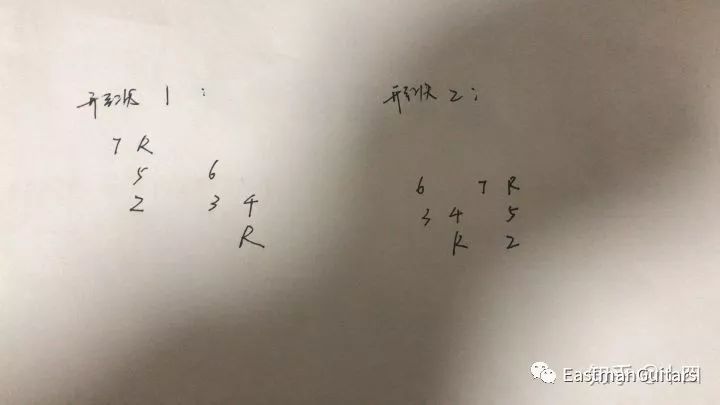 形状 1 :
7 R
5 6
2 3 4
R
形状 2 :
6 7 R
3 4 5
R 2
EastmanGuitars